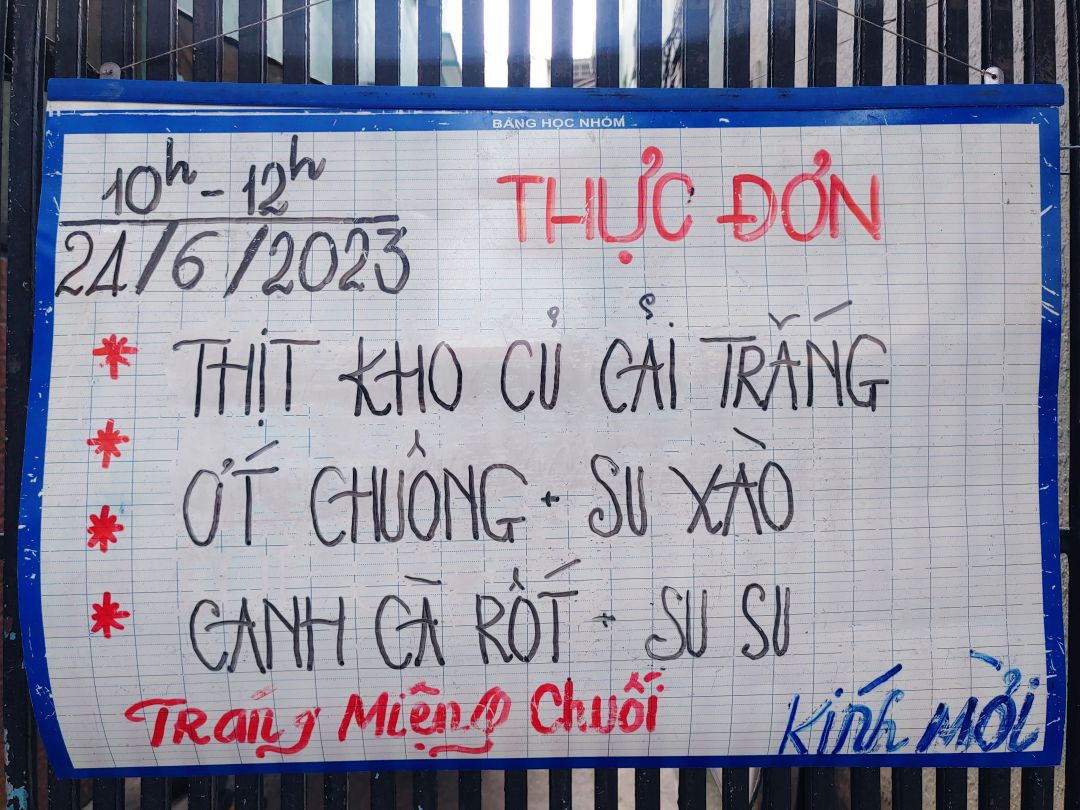 BẢNG HỌC NHÓM
10h - 12h
24/6/2023
THỰC ĐƠN
* THỊT KHO CỦ CẢI TRẮNG
*
* ỚT CHUÔNG + SU XÀO
* CANH CÀ RỐT + SU SU
Tráng Miệng Chuối
Kính MỜI